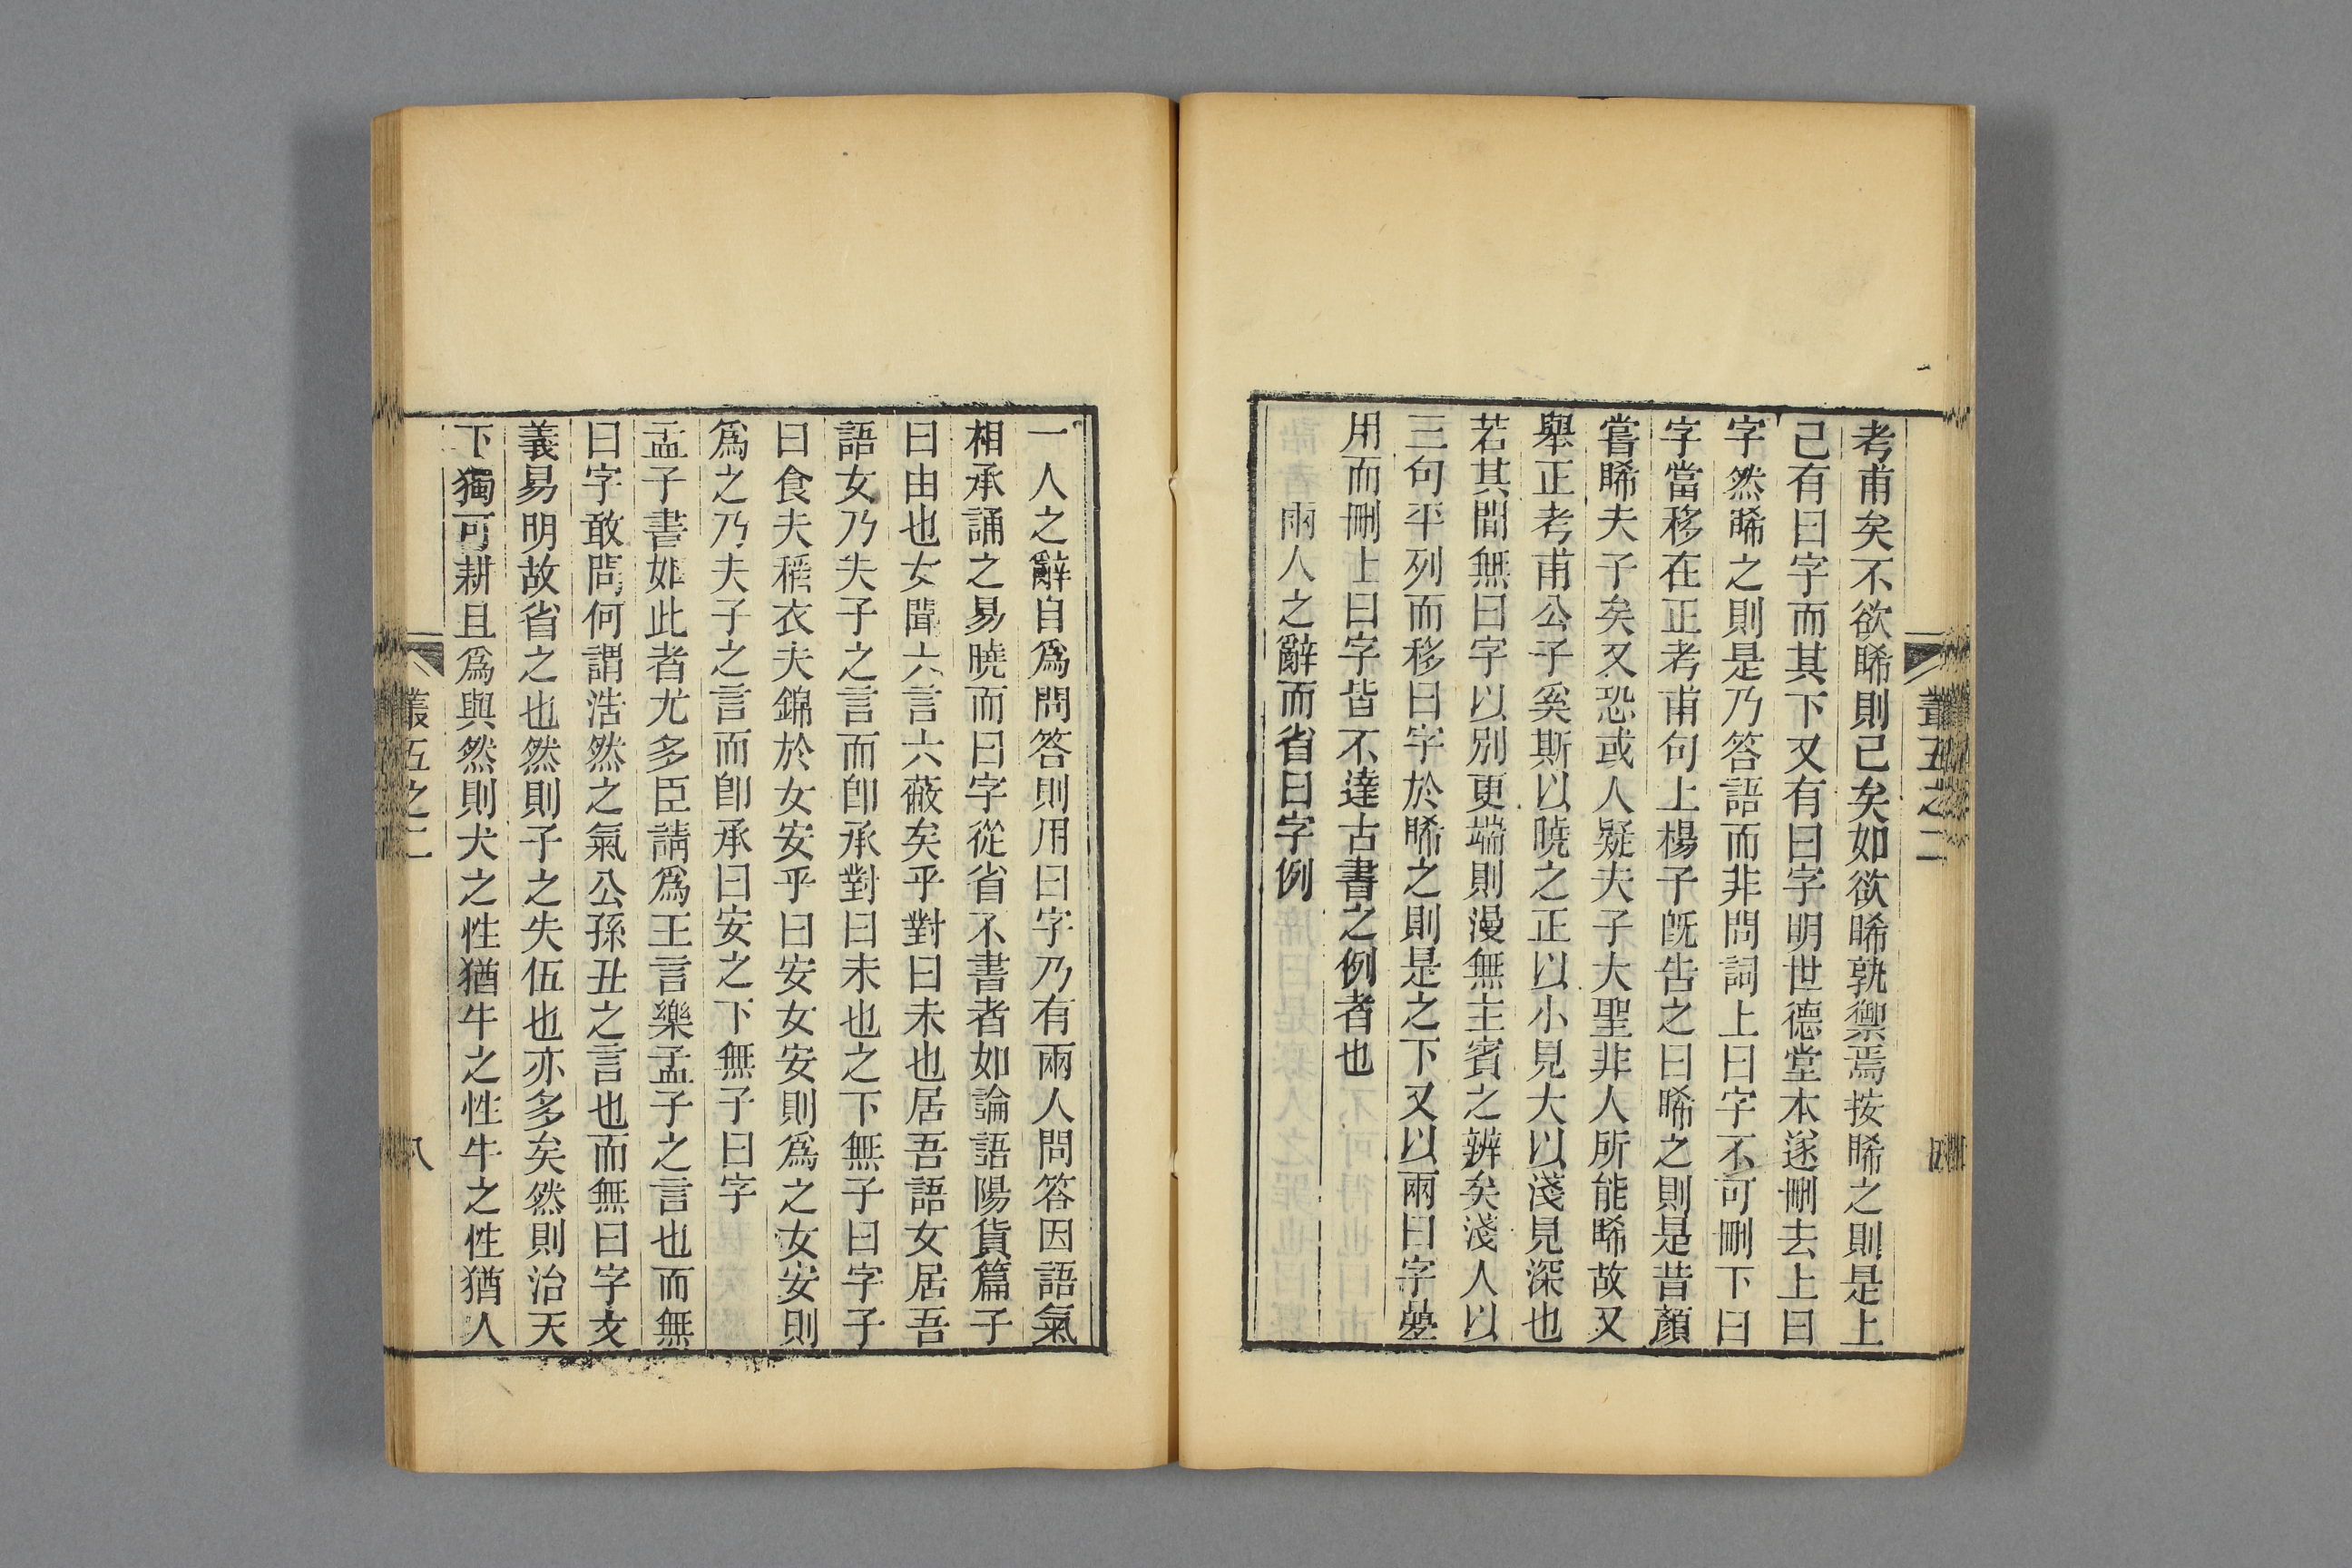 考甫矣不欲睎則已矣如欲睎孰禦焉按睎之則是上
已有曰字而其下又有曰字明世德堂本遂刪去上曰
字然睎之則是乃答語而非問詞上曰字不可刪下曰
字當移在正考甫句上楊子旣告之曰睎之則是昔顏
嘗睎夫子矣又恐或人疑夫子大聖非人所能睎故又
舉正考甫公子奚斯以曉之正以小見大以淺見深也
若其閒無曰字以別更端則漫無主賓之辨矣淺人以
三句平列而移曰字於睎之則是之下又以兩曰字疊
用而刪上曰字皆不達古書之例者也
兩人之辭而省曰字例
叢五之二
一人之辭自爲問答則用曰字乃有兩人問答因語氣
相承誦之易曉而曰字從省不書者如論語陽貨篇子
曰由也女聞六言六蔽矣乎對曰未也居吾語女居吾
語女乃夫子之言而卽承對曰未也之下無子曰字子
曰食夫稻衣夫錦於女安乎曰安女安則爲之女安則
爲之乃夫子之言而卽承曰安之下無子曰字
孟子書如此者尤多臣請爲王言樂孟子之言也而無
曰字敢問何謂浩然之氣公孫丑之言也而無曰字文
義易明故省之也然則子之失伍也亦多矣然則治天
下獨可耕且爲與然則犬之性猶牛之性牛之性猶人
叢五之二
八